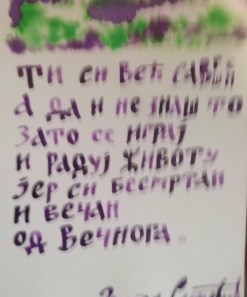 ТИ СИ ВЕЋ САВЕТ
А ДА И НЕ ЗНАШ ТО
ЗАТО СЕ ИГРАЈ
И РАДУЈ ЖИВОТУ
ЈЕР СИ БЕСМРТАН
И ВЕЧАН
ОД ВЕЧНОГА